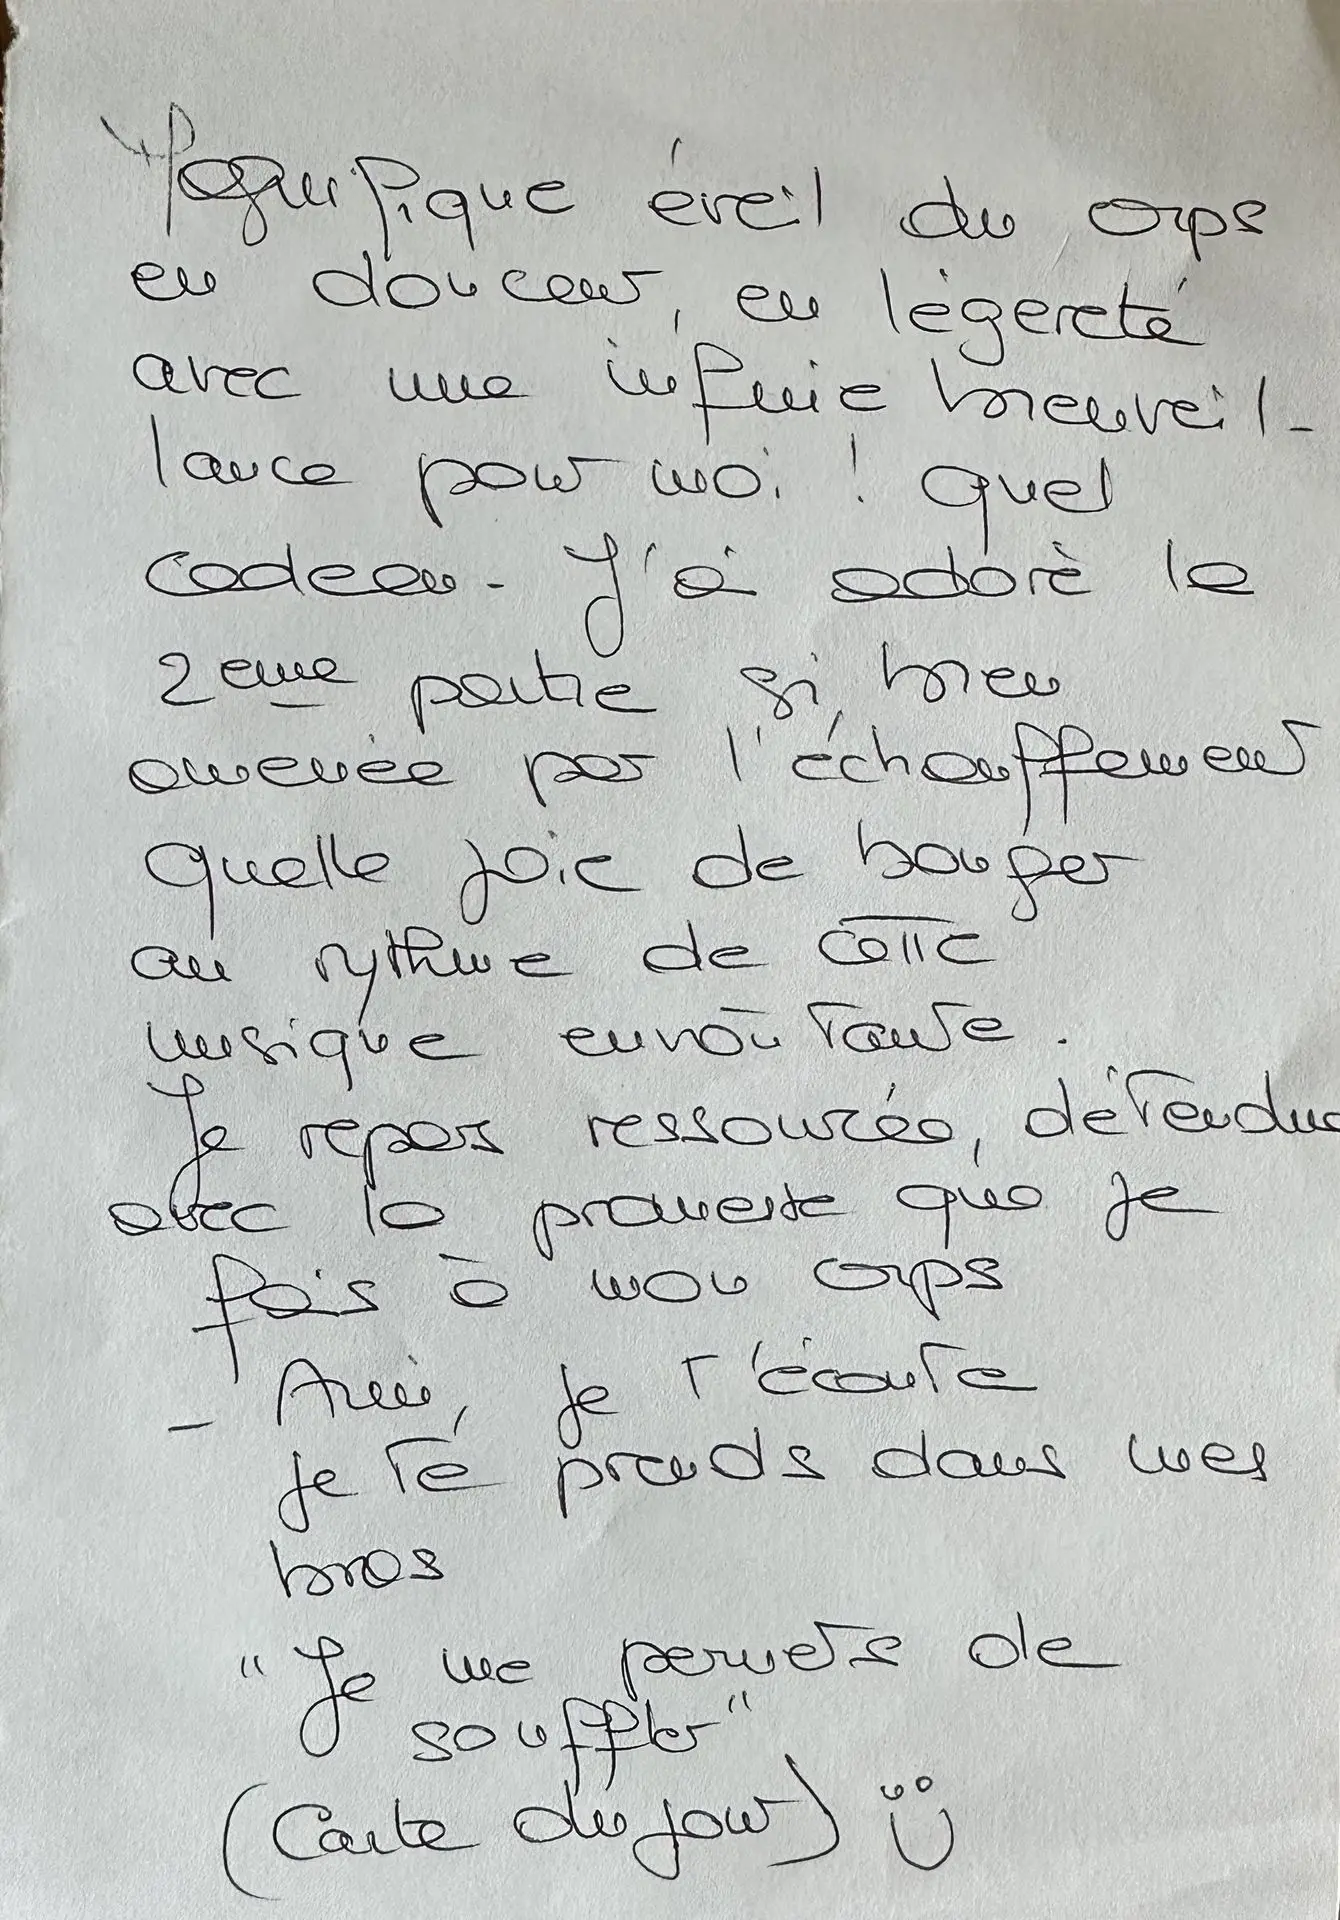 Magnifique éveil du corps
en douceur, en légèreté
avec une infinie bienveil-
lance pour moi ! Quel
cadeau - J'ai adoré la
2eme partie si bien
amenée par l'échauffement
quelle joie de bouger
au rythme de cette
musique envoûtante.
Je repars ressourcée, détendue
avec la promesse que je
fais à mon corps
- Ami, je t'écoute
je te prends dans mes
bras
"Je me permets de
souffler"
(Carte du jour)